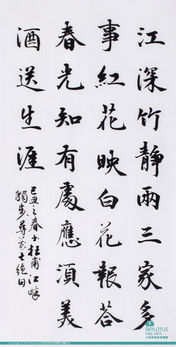 江深竹靜兩三家多
事紅花映白花報荅
春光知有處應須美
酒送生涯
己丑之春書杜甫江畔
獨步尋花七絕句
SKYLOTUS
FINE ARTS